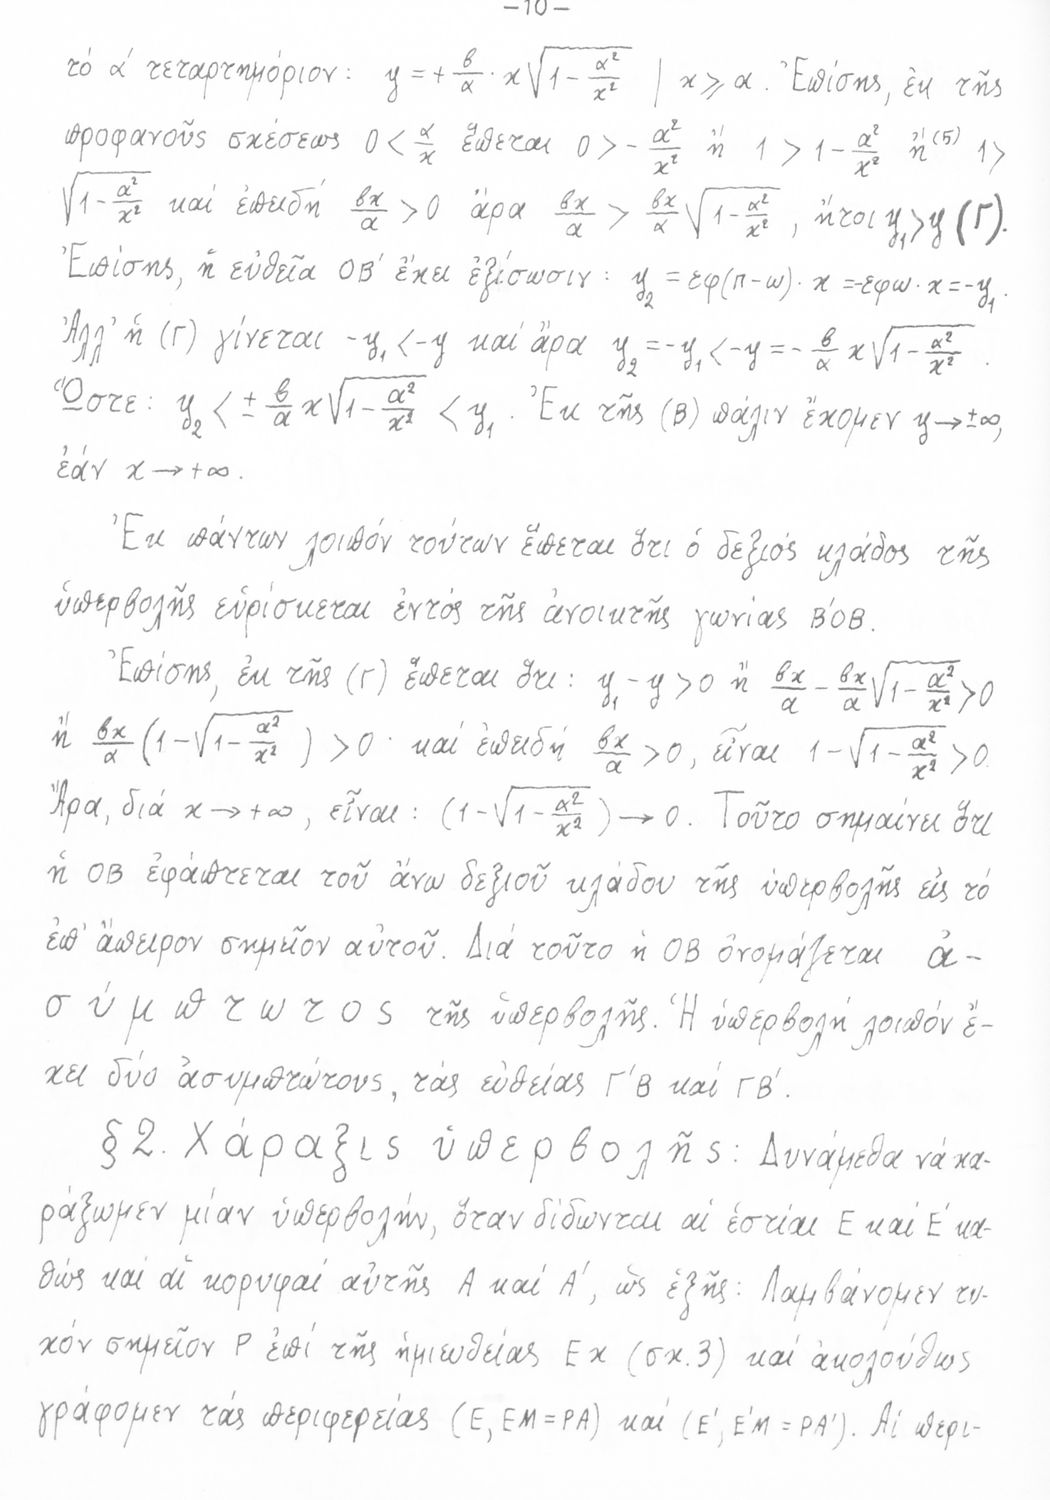 -10-
τό α΄ τεταρτημόριον: y = + β/α · x√(1 - α²/x²) | x ⩾ α. Ἐπίσης, ἐκ τῆς
προφανοῦς σχέσεως 0 < α/x ἕπεται 0 > - α²/x² ἤ 1 > 1 - α²/x² ἤ⁽⁵⁾ 1 >
√(1 - α²/x²) καί ἐπειδή βx/α > 0 ἄρα βx/α > βx/α √(1 - α²/x²), ἤτοι y₁ > y (Γ).
Ἐπίσης, ἡ εὐθεῖα ΟΒ΄ ἔχει ἐξίσωσιν: y₂ = εφ(π-ω)· x = -εφω · x = -y₁.
Ἀλλ' ἡ (Γ) γίνεται -y₁ < -y καί ἄρα y₂ = -y₁ < -y = - β/α x√(1 - α²/x²).
Ὥστε: y₂ < ± β/α x√(1 - α²/x²) < y₁. Ἐκ τῆς (Β) πάλιν ἔχομεν y → ±∞,
ἐάν x → +∞.
Ἐκ πάντων λοιπόν τούτων ἕπεται ὅτι ὁ δεξιός κλάδος τῆς
ὑπερβολῆς εὑρίσκεται ἐντός τῆς ἀνοικτῆς γωνίας Β΄ΟΒ.
Ἐπίσης, ἐκ τῆς (Γ) ἕπεται ὅτι: y₁ - y > 0 ἤ βx/α - βx/α √(1 - α²/x²) > 0
ἤ βx/α (1 - √(1 - α²/x²)) > 0 · καί ἐπειδή βx/α > 0, εἶναι 1 - √(1 - α²/x²) > 0.
Ἄρα, διά x → +∞, εἶναι: (1 - √(1 - α²/x²)) → 0. Τοῦτο σημαίνει ὅτι
ἡ ΟΒ ἐφάπτεται τοῦ ἄνω δεξιοῦ κλάδου τῆς ὑπερβολῆς εἰς τό
ἐπ' ἄπειρον σημεῖον αὐτοῦ. Διά τοῦτο ἡ ΟΒ ὀνομάζεται ἀ-
σύμπτωτος τῆς ὑπερβολῆς. Ἡ ὑπερβολή λοιπόν ἔ-
χει δύο ἀσυμπτώτους, τάς εὐθείας Γ΄Β καί ΓΒ΄.
§2. Χάραξις ὑπερβολῆς: Δυνάμεθα νά χα-
ράξωμεν μίαν ὑπερβολήν, ὅταν δίδωνται αἱ ἑστίαι Ε καί Ε΄ κα-
θώς καί αἱ κορυφαί αὐτῆς Α καί Α΄, ὡς ἑξῆς: Λαμβάνομεν τυ-
χόν σημεῖον Ρ ἐπί τῆς ἡμιευθείας Εx (σχ. 3) καί ἀκολούθως
γράφομεν τάς περιφερείας (Ε, ΕΜ = ΡΑ) καί (Ε΄, Ε΄Μ = ΡΑ΄). Αἱ περι-